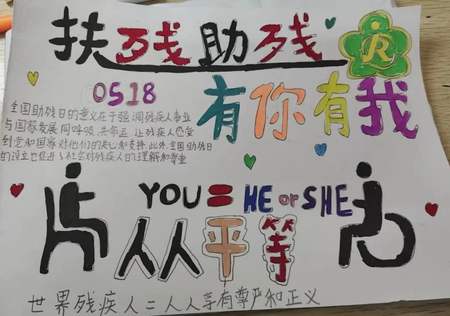 扶残助残
0518
有你有我
全国助残日的意义在于强调残疾人事业
与国家发展同呼吸,共命运,让残疾人感受
到党和国家对他们的关心和支持,此外,全国助残日
的设立也促进了社会对残疾人的理解和尊重
YOU=HE or SHE
人人平等
世界残疾人=人人享有尊严和正义